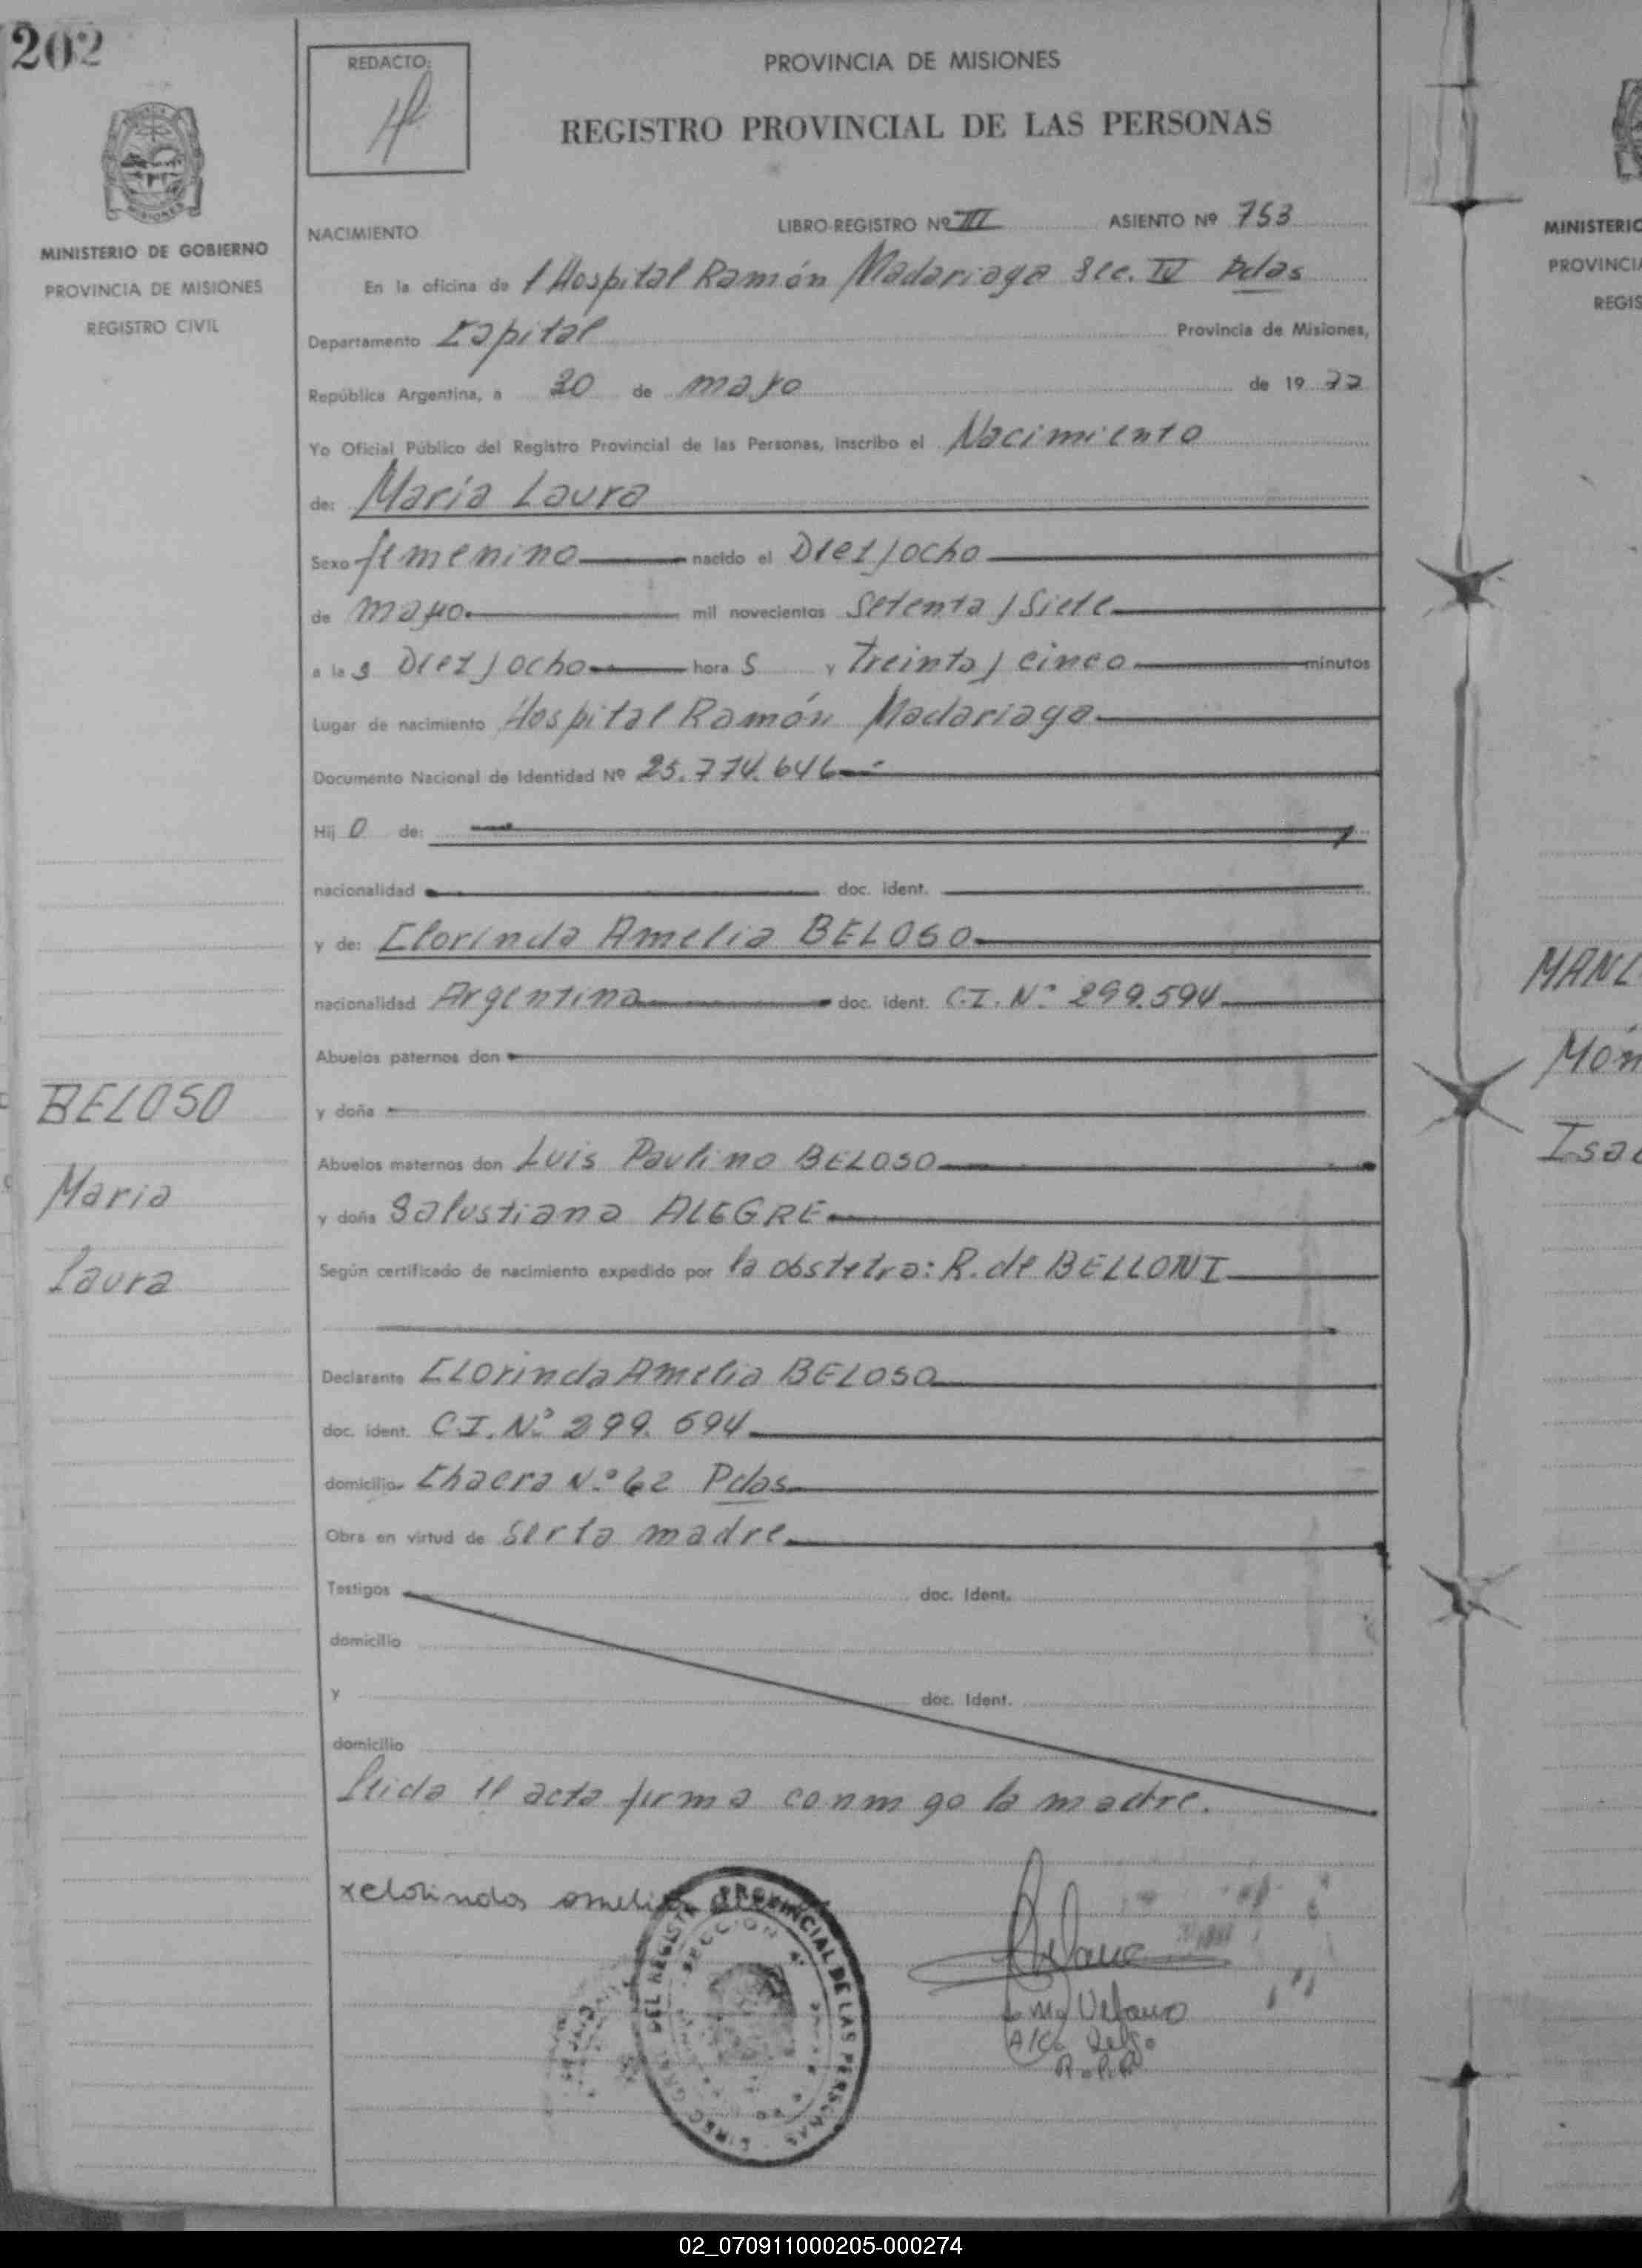 202
REDACTO:
PROVINCIA DE MISIONES
REGISTRO PROVINCIAL DE LAS PERSONAS
MINISTERIO DE GOBIERNO
PROVINCIA DE MISIONES
REGISTRO CIVIL
NACIMIENTO LIBRO-REGISTRO Nº III ASIENTO Nº 753
En la oficina de l Hospital Ramón Madariaga Sec. IV Pdas
Departamento Capital Provincia de Misiones,
República Argentina, a 30 de mayo de 19 77
Yo Oficial Público del Registro Provincial de las Personas, inscribo el Nacimiento
de: María Laura
Sexo femenino nacido el Diez y ocho
de mayo mil novecientos Setenta y Siete
a la s Diez y ocho hora s y Treinta y cinco minutos
Lugar de nacimiento Hospital Ramón Madariaga
Documento Nacional de Identidad Nº 25.774.646
Hij o de:
nacionalidad doc. ident.
y de: Clorinda Amelia BELOSO
nacionalidad Argentina doc. ident. C.I. Nº 299.594
Abuelos paternos don
y doña
Abuelos maternos don Luis Paulino BELOSO
y doña Salustiana ALEGRE
Según certificado de nacimiento expedido por la obstetra: R. de BELLONI
Declarante Clorinda Amelia BELOSO
doc. ident. C.I. Nº 299.594
domicilio Chacra Nº 62 Pdas
Obra en virtud de ser la madre
Testigos doc. Ident.
domicilio
y doc. Ident.
domicilio
Leida el acta firma conmigo la madre.
BELOSO
Maria
Laura
xclorinda amelia
PROVINCIAL DE LAS PERSONAS
SECCION 4ª
MINISTERIO
PROVINCIA
REGIS
MANL
Món
Isa
02_070911000205-000274